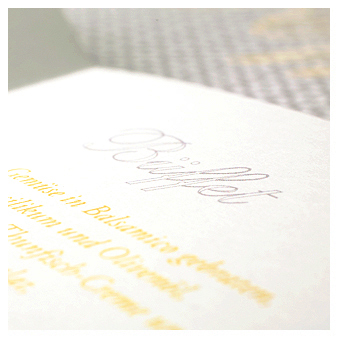 Büffet
Gemüse in Balsamico gebraten,
ilikum und Olivenöl,
Thunfisch-Creme